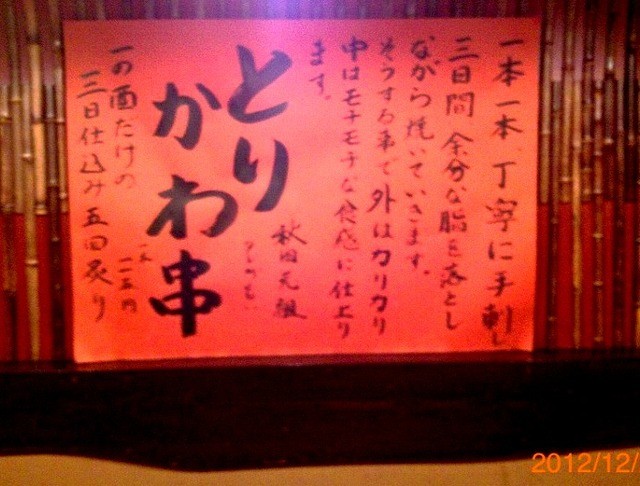 一本一本、丁寧に手刺し
三日間 余分な脂を落とし
ながら焼いていきます。
そうする事で外はカリカリ
中はモチモチな食感に仕上り
ます。
秋田元祖
とり
かわ串
一本 一一五円
一の面だけの
三日仕込み五回炙り
2012/12/